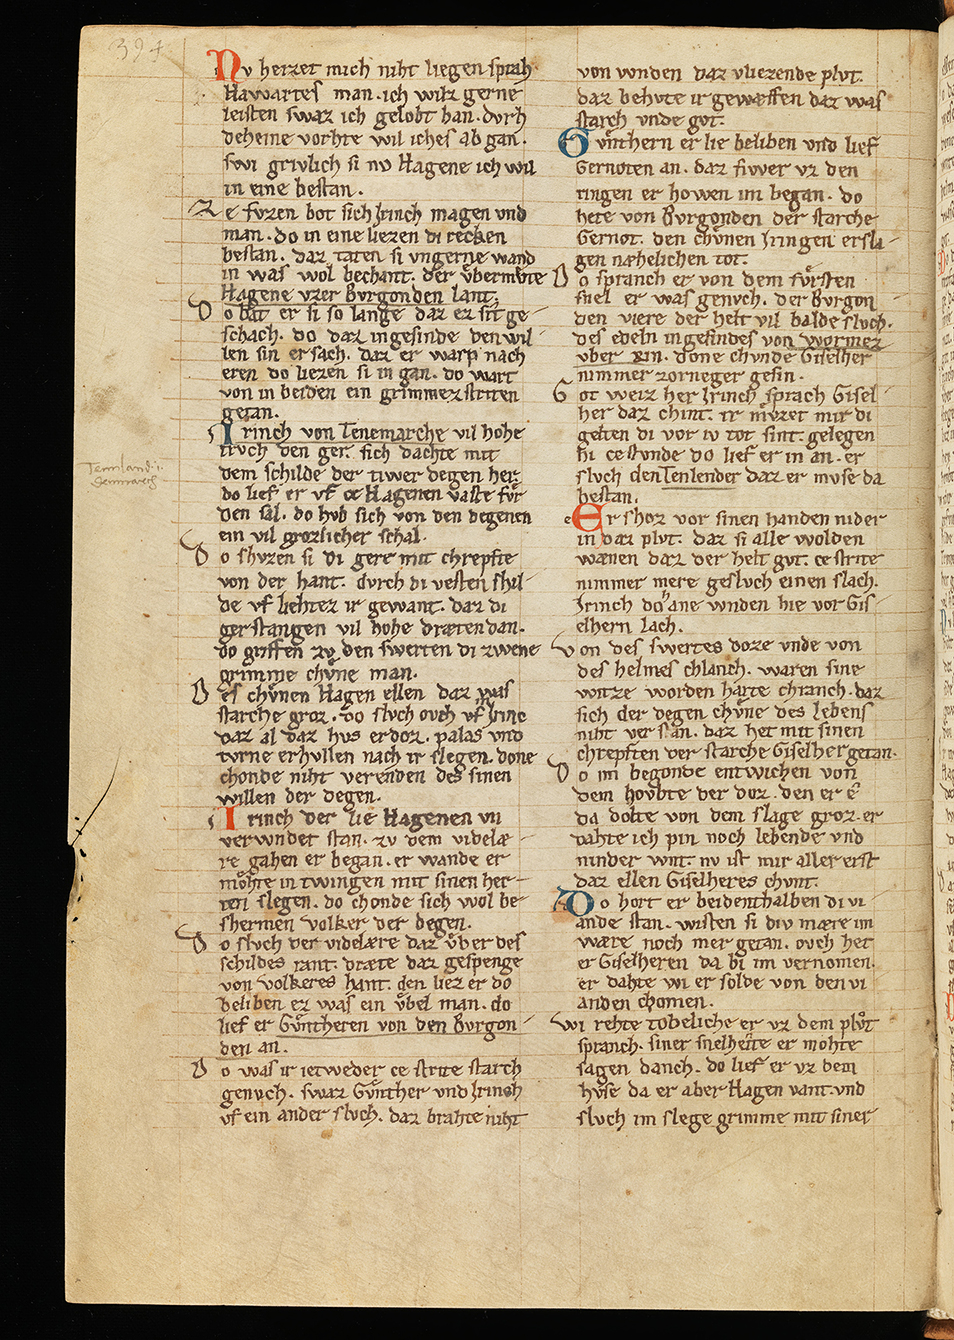 394
Nv heizet mich niht liegen sprah
Hawartes man. ich wilz gerne
leisten swaz ich gelobt han. dvrh
deheine vorhte wil iches ab gan.
swi grivlich si nv Hagene ich wil
in eine bestan.
Ze fvzen bot sich Jrinch magen vnd
man. do in eine liezen di recken
bestan. daz taten si vngerne wand
in was wol bechant. der vͤbermvͤte
Hagene vzer Bvrgonden lant.
Do bat er si so lange daz ez sit ge-
schach. do daz ingesinde den wil-
len sin ersach. daz er warp nach
eren do liezen si in gan. do wart
von in beiden ein grimmez striten
getan.
Jrinch von Tenemarche vil hohe
trvch den ger. sich dachte mit
dem schilde der tiwer degen her.
do lief er vf ce Hagenen vaste fvͤr
den sal. do hvb sich von den degenen
ein vil grozlicher schal.
Do shvzen si di gere mit chrepfte
von der hant. dvrch di vesten shil-
de vf liehtez ir gewant. daz di
gerstangen vil hohe dræten dan.
do griffen zv den swerten di zwene
grimme chvͤne man.
Des chvͤnen Hagen ellen daz was
starche groz. do slvch ovch vf Jrinc
daz al daz hvs erdoz. palas vnd
tvrne erhvllen nach ir slegen. done
chonde niht verenden des sinen
willen der degen.
Jrinch der lie Hagenen vn
verwndet stan. zv dem videlæ-
re gahen er began. er wande er
mohte in twingen mit sinen her-
ten slegen. do chonde sich wol be-
shermen volker der degen.
Do slvch der videlære daz vͤber des
schildes rant. dræte daz gespenge
von volkeres hant. den liez er do
beliben ez was ein vͤbel man. do
lief er Gvͤntheren von den Bvrgon-
den an.
Do was ir ietweder ce strite starch
genvch. swaz Gvͤnther vnd Jrinch
vf ein ander slvch. daz brahte niht
von wnden daz vliezende plvt.
daz behvte ir gewæffen daz was
starch vnde gvt.
Gvͤnthern er lie beliben vnd lief
Gernoten an. daz fiwer vz den
ringen er howen im began. do
hete von Bvrgonden der starche
Gernot. den chvͤnen Jringen ersla-
gen næhelichen tot.
Do spranch er von dem fvͤrsten
snel er was genvch. der Bvrgon-
den viere der helt vil balde slvch.
des edeln ingesindes von wormez
vber rin. done chvnde Giselher
nimmer zorneger gesin.
Got weiz her Jrinch sprach Gisel-
her daz chint. ir mvͤzet mir di
gelten di vor iv tot sint. gelegen
hi cestvnde do lief er in an. er
slvch den Tenlender daz er mvse da
bestan.
Er shoz vor sinen handen nider
in daz plvt. daz si alle wolden
wænen daz der helt gvt. ce strite
nimmer mere geslvch einen slach.
Jrinch doh ane wnden hie vor Gis-
elhern lach.
Von des swertes doze vnde von
des helmes chlanch. waren sine
witze worden harte chranch. daz
sich der degen chvͤne des lebens
niht versan. daz het mit sinen
chrepften der starche Giselher getan.
Do im begonde entwichen von
dem hovbte der doz. den er e
da dolte von dem slage groz. er
dahte ich pin noch lebende vnd
ninder wnt. nv ist mir aller erst
daz ellen Giselheres chvnt.
Do hort er beidenthalben di vi-
ande stan. wisten si div mære im
wære noch mer getan. ovch het
er Giselheren da bi im vernomen.
er dahte wi er solde von den vi-
anden chomen.
Wi rehte tobeliche er vz dem plvͦt
spranch. siner snelheite er mohte
sagen danch. do lief er vz dem
hvse da er aber Hagen vant. vnd
slvch im slege grimme mit siner